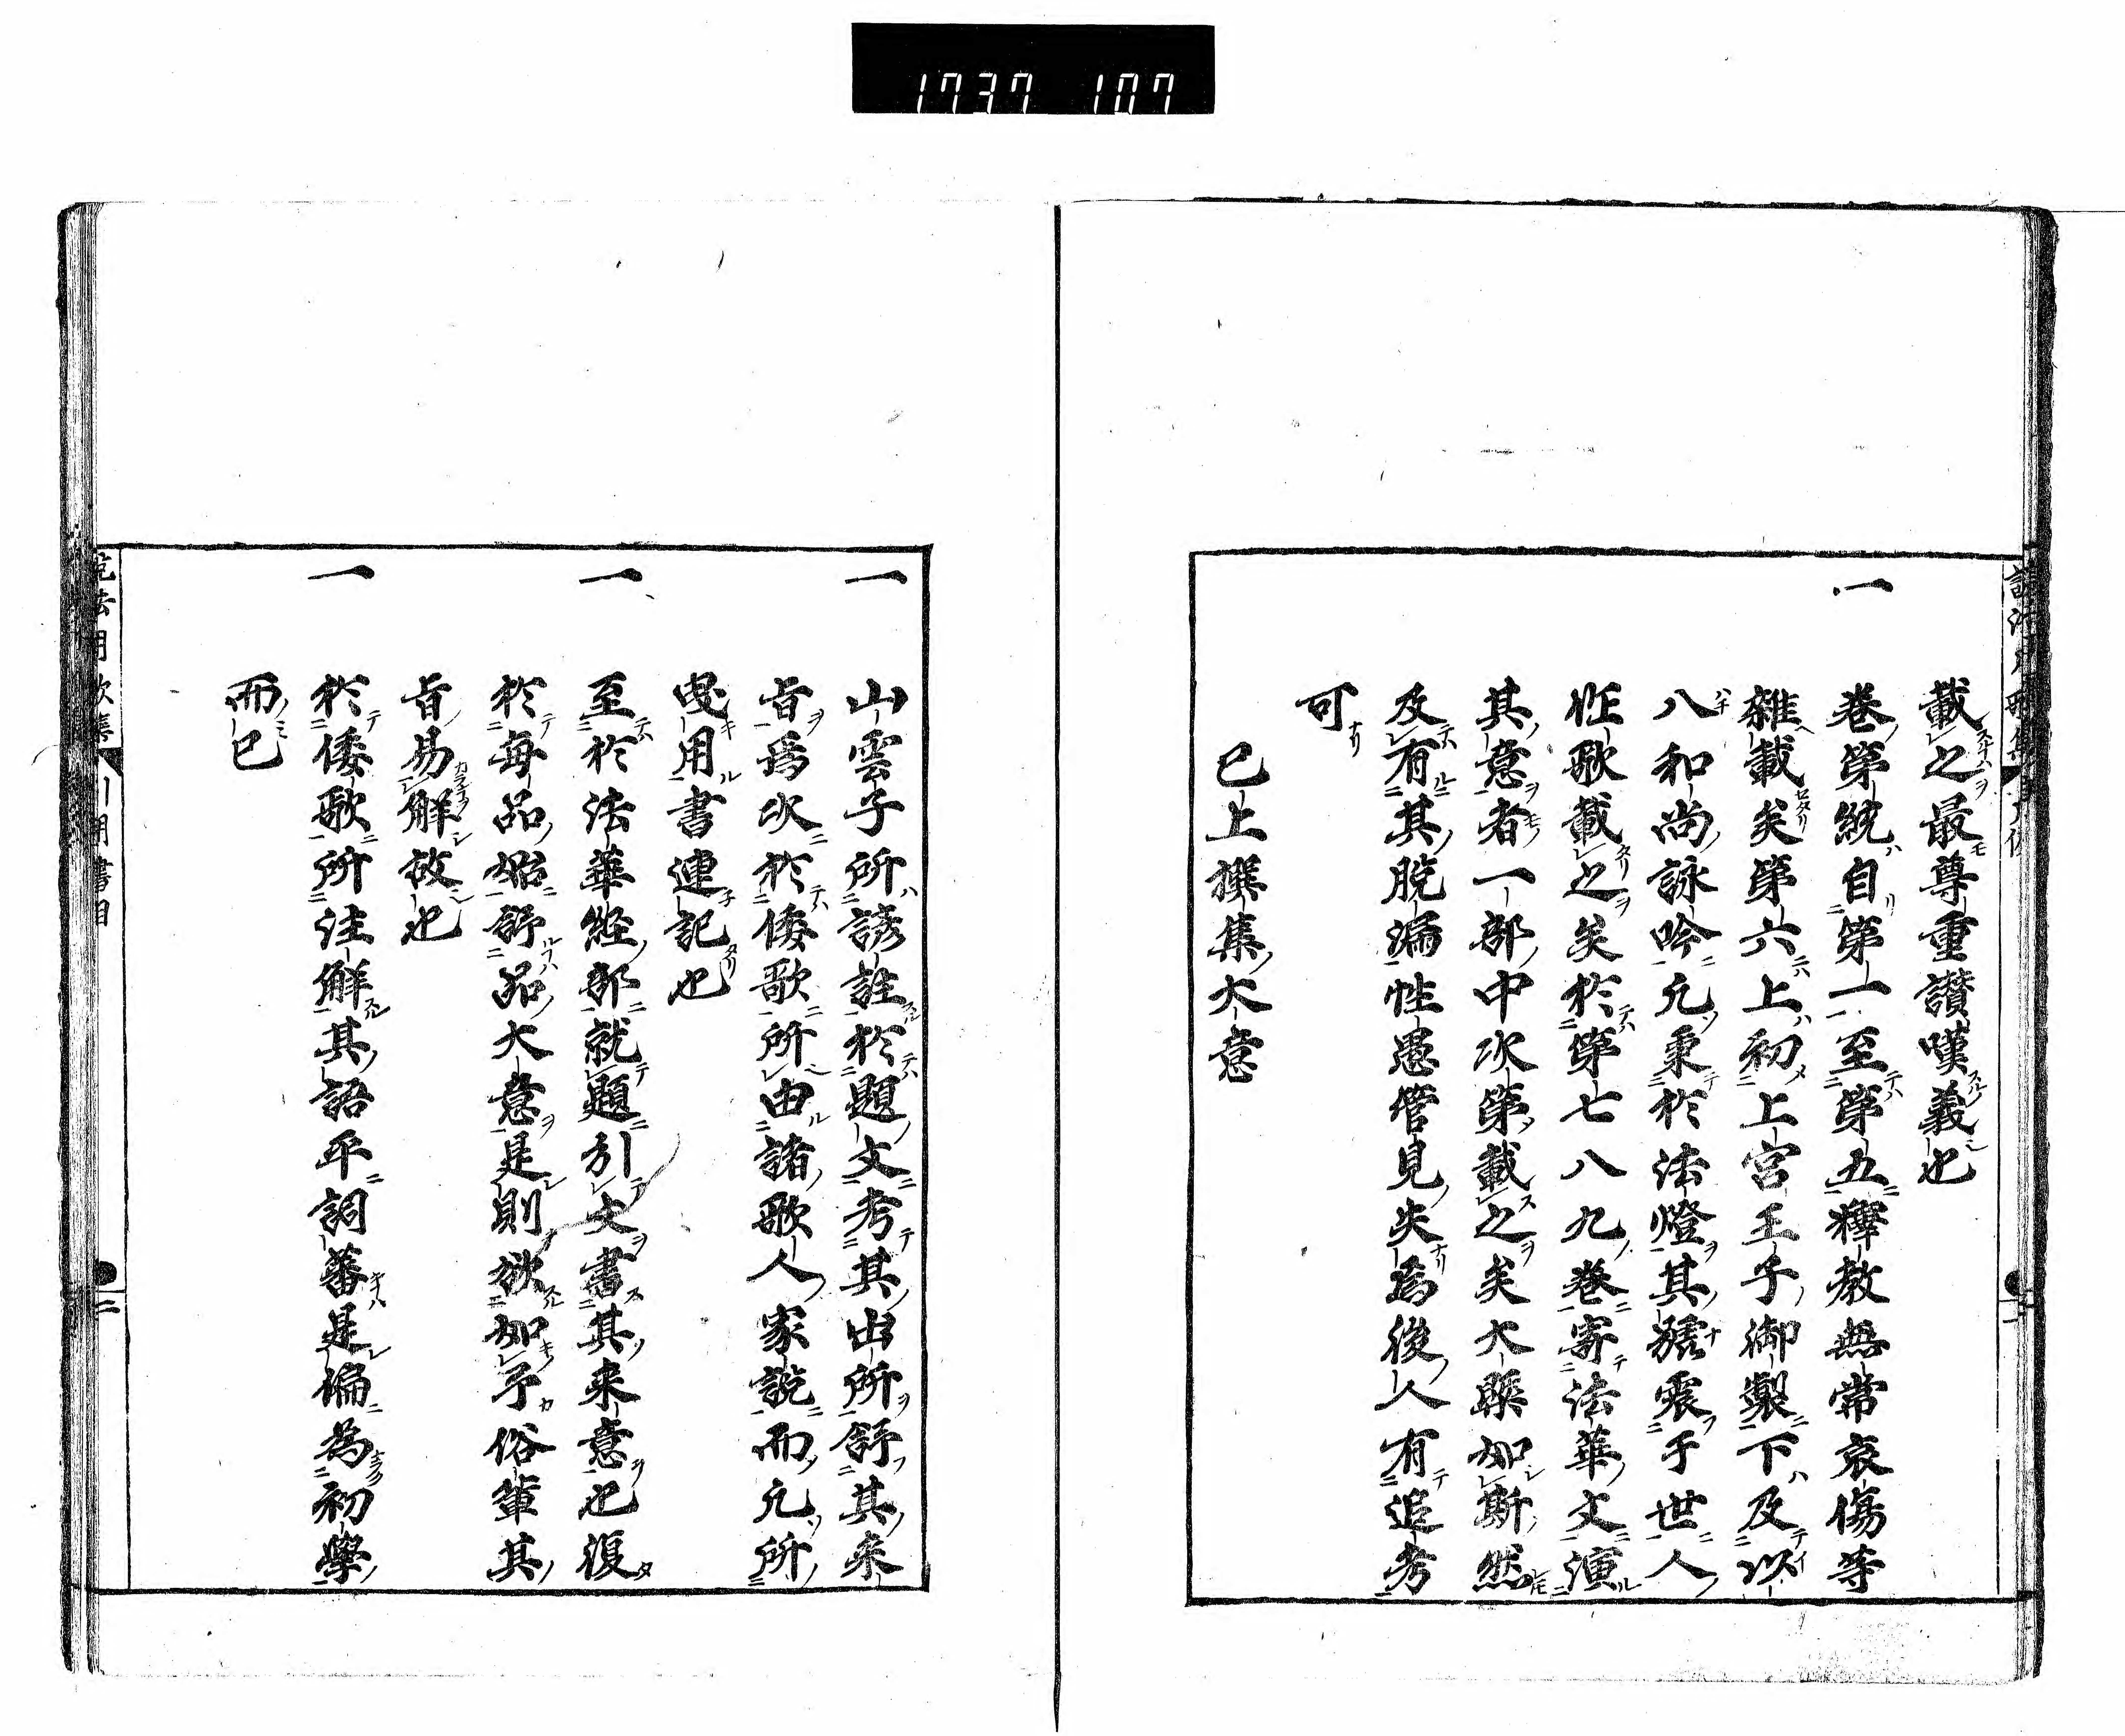 1737 107
載之最尊重讃嘆義也
一 卷第統自第一至第五釋教無常哀傷等
雜載矣第六上初上宮王子御製下及以
八和尚詠吟凡秉於法燈其譽震于世人
恠歌載之矣於第七八九卷寄法華文演
其意者一部中次第載之矣大槩如斯然
及有其脱漏性愚管見失爲後人有追考
可
已上撰集大意
一 山雲子所諺註於題文考其出所舒其来
旨爲次於倭歌所由諸歌人家説而凡所
曵用書連記也
一 至於法華經部就題引文書其来意也復
於毎品始舒品大意是則欲如予俗輩其
旨易解故也
一 於倭歌所注解其語平詞蕃是偏為初學
而已
引用書目
二